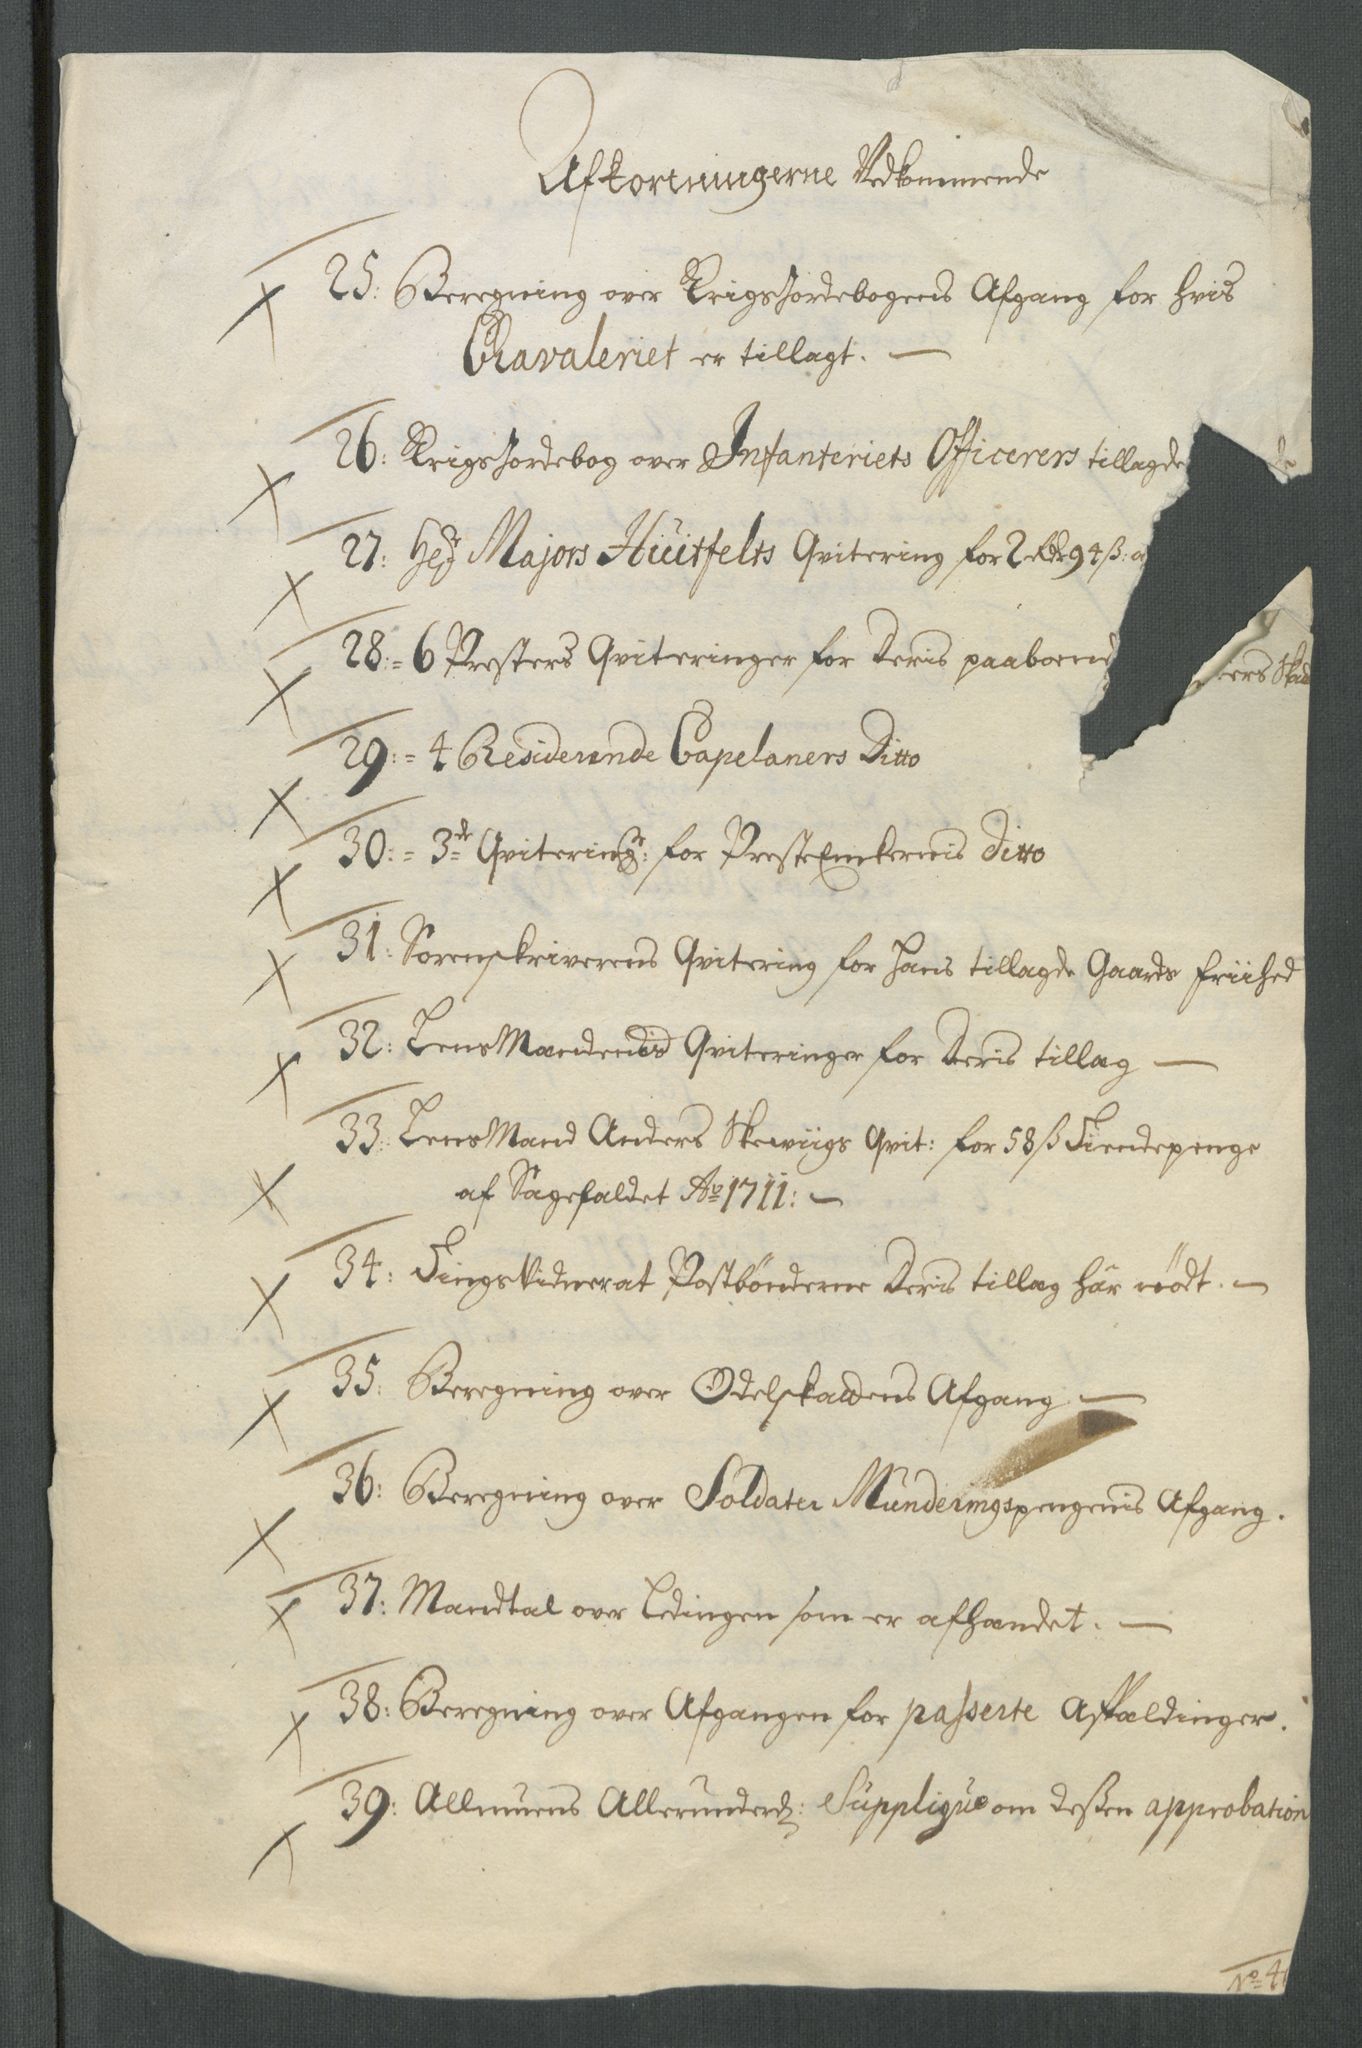 Afkortningerne Vedkommende
25: Beregning over Krigsjordebogens Afgang for hvis
Chavaleriet er tillagt. —
26: Krigsjordebog over Infanteriets Officerers tillagde
27: Hr Majors Huitfelts Qvitering for 2 rdr 94 ß:
28:= 6 Presters Qviteringer for deris paaboend ers Skat
29:= 4 Residerende Capelaners Ditto
30:= 3de Qvitering: for PresteEnkernis ditto
31: Sorenskriverens Qvitering for hans tillagde Gaards friihed
32: LensMændenis Qviteringer for deris tillag —
33: LensMand Anders Skewigs Qvit: for 58 ß Tiendepenge
af Sagefaldet Ao 1711: —
34: Tingsvidne at Postbønderne deris tillag har nødt. —
35: Beregning over Odelskattens Afgang —
36: Beregning over Soldater Munderingspengenis Afgang.
37: Mandtal over Ledingen som er afhandet. —
38: Beregning over Afgangen for passerte Affældinger.
39: Allmuens Allerunderd: Supplique om dessen approbation
No 4